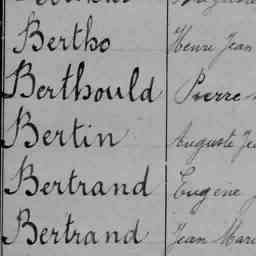 Bertho Henri Jean
Berthould Pierre
Bertin Auguste
Bertrand Eugène
Bertrand Jean Mari